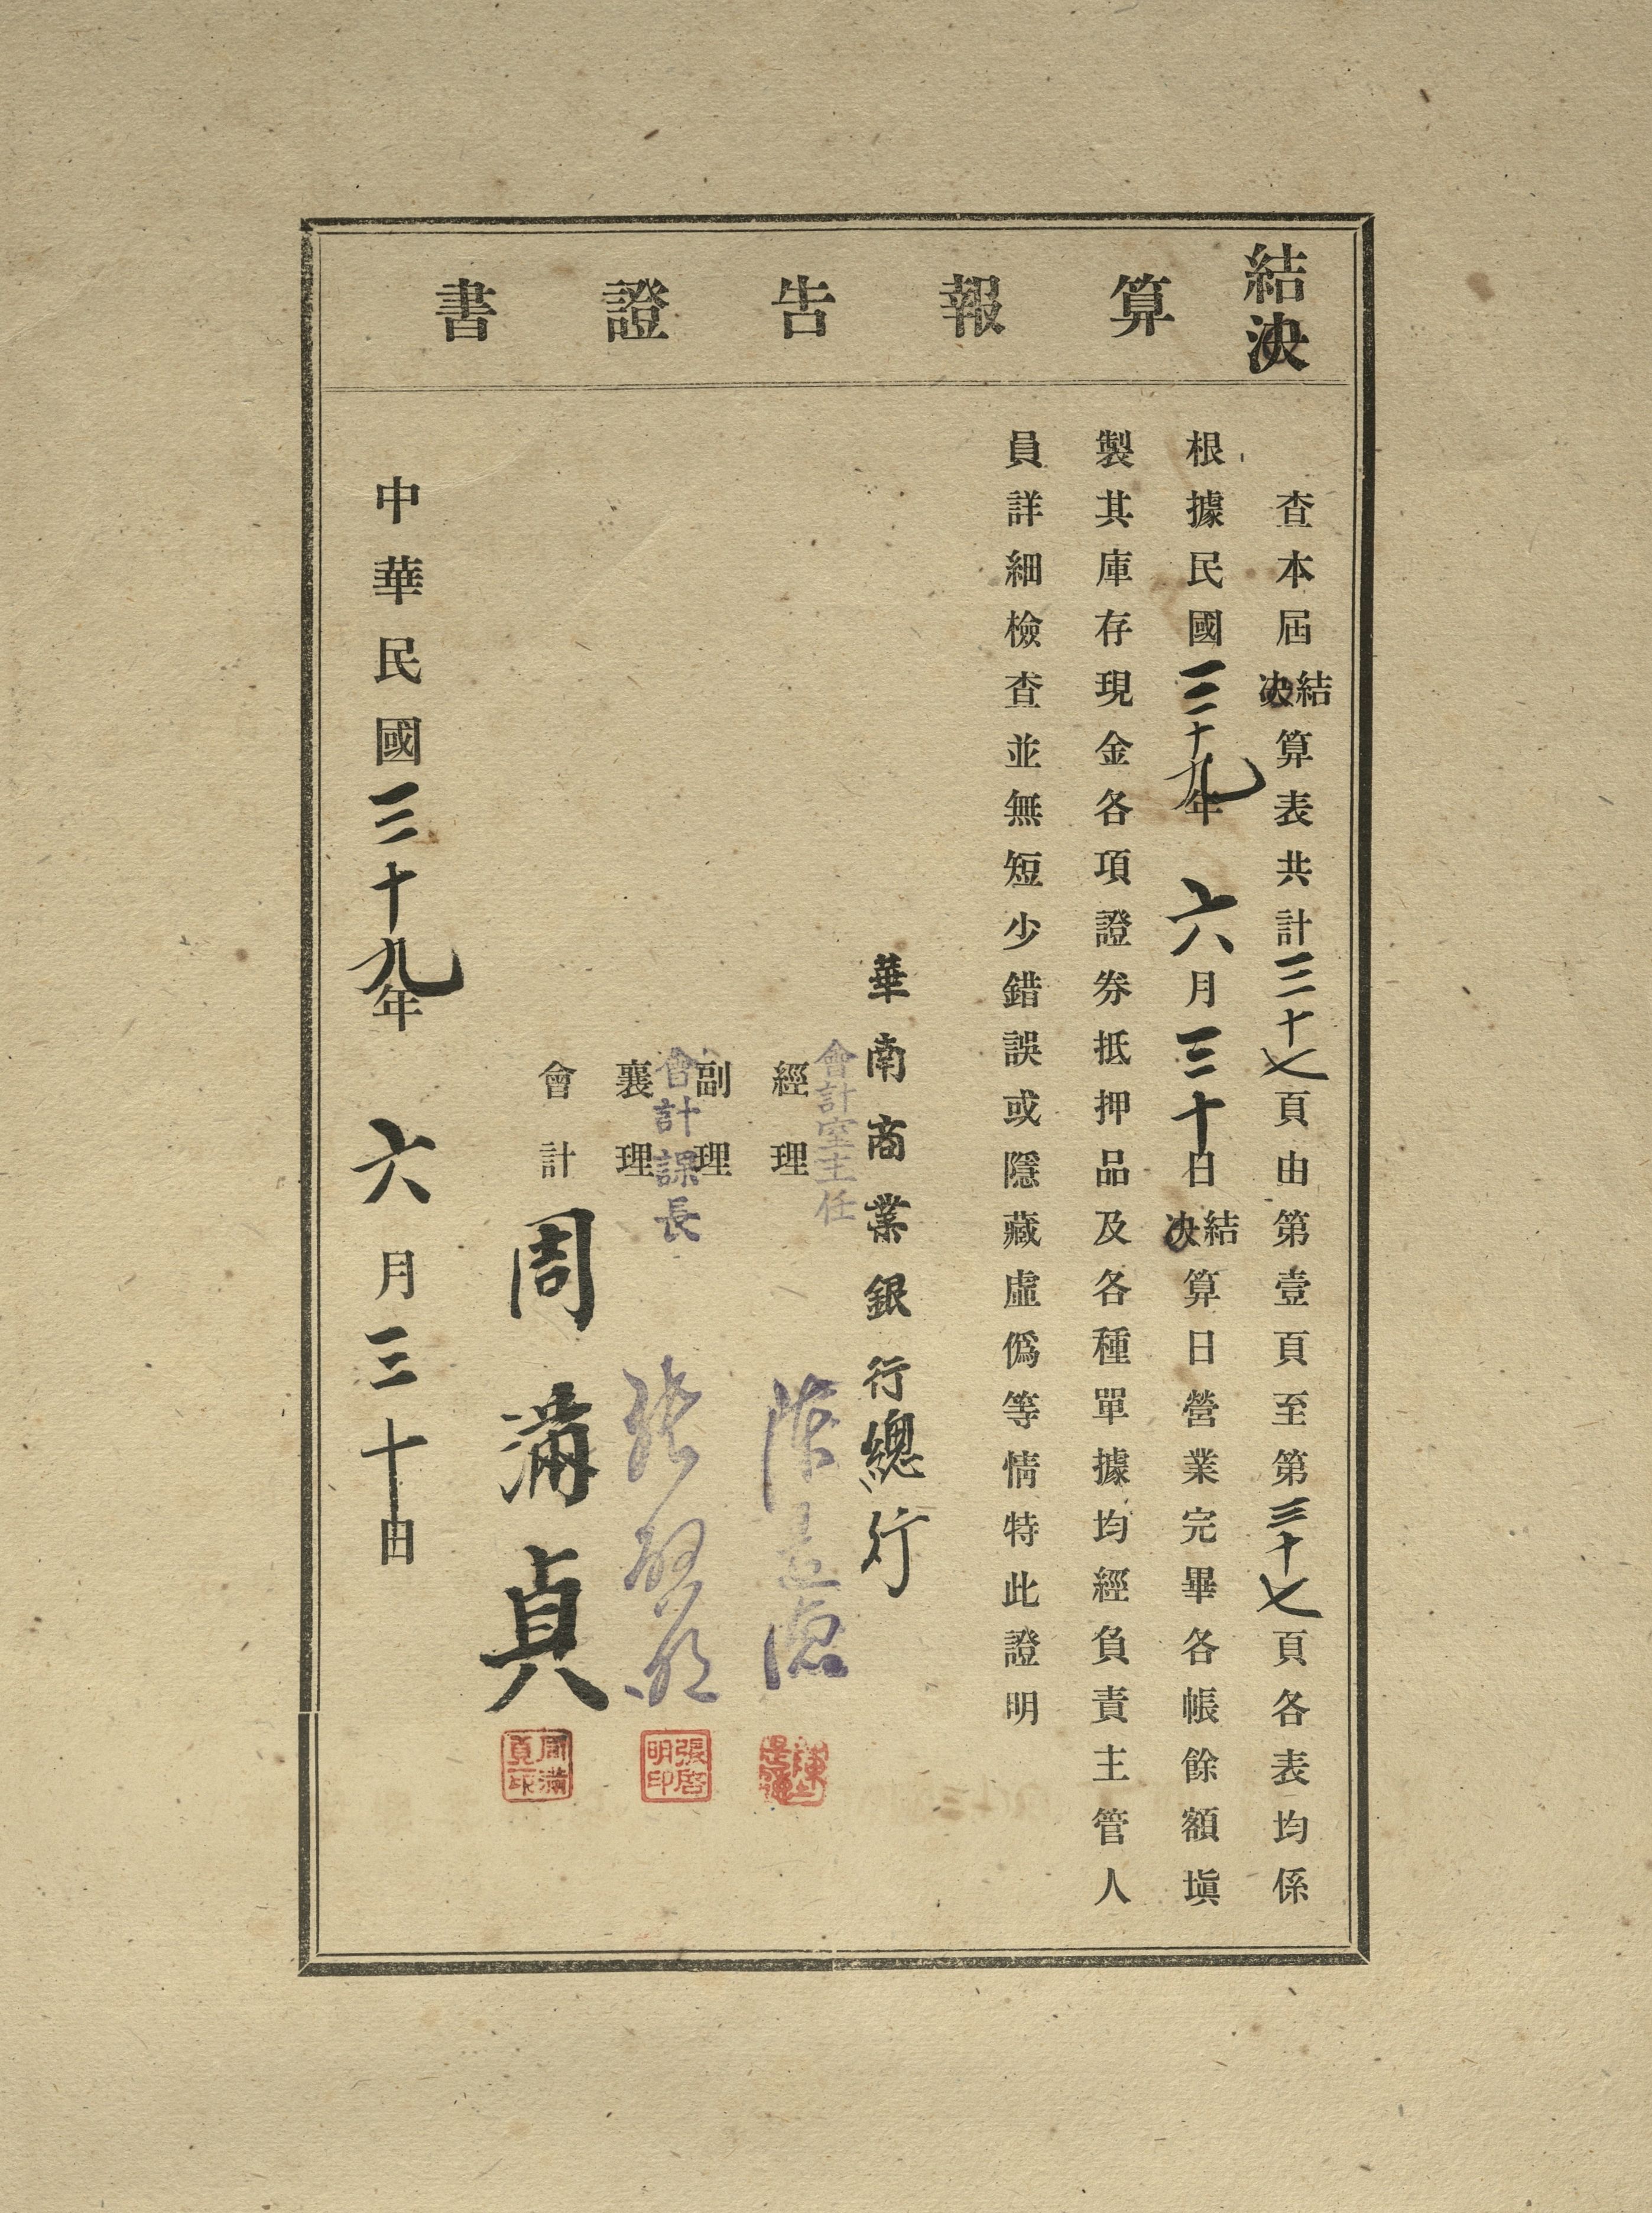 結決算報告證書
查本屆結決算表共計三十七頁由第壹頁至第三十七頁各表均係
根據民國三十九年六月三十日結決算日營業完畢各帳餘額塡
製其庫存現金各項證券抵押品及各種單據均經負責主管人
員詳細檢查並無短少錯誤或隱藏虛僞等情特此證明
華南商業銀行總行
會計室主任
經理
陳
副理
會計課長
張啓明
張啓明印
襄理
會計
周滿貞
周滿貞印
中華民國三十九年六月三十日